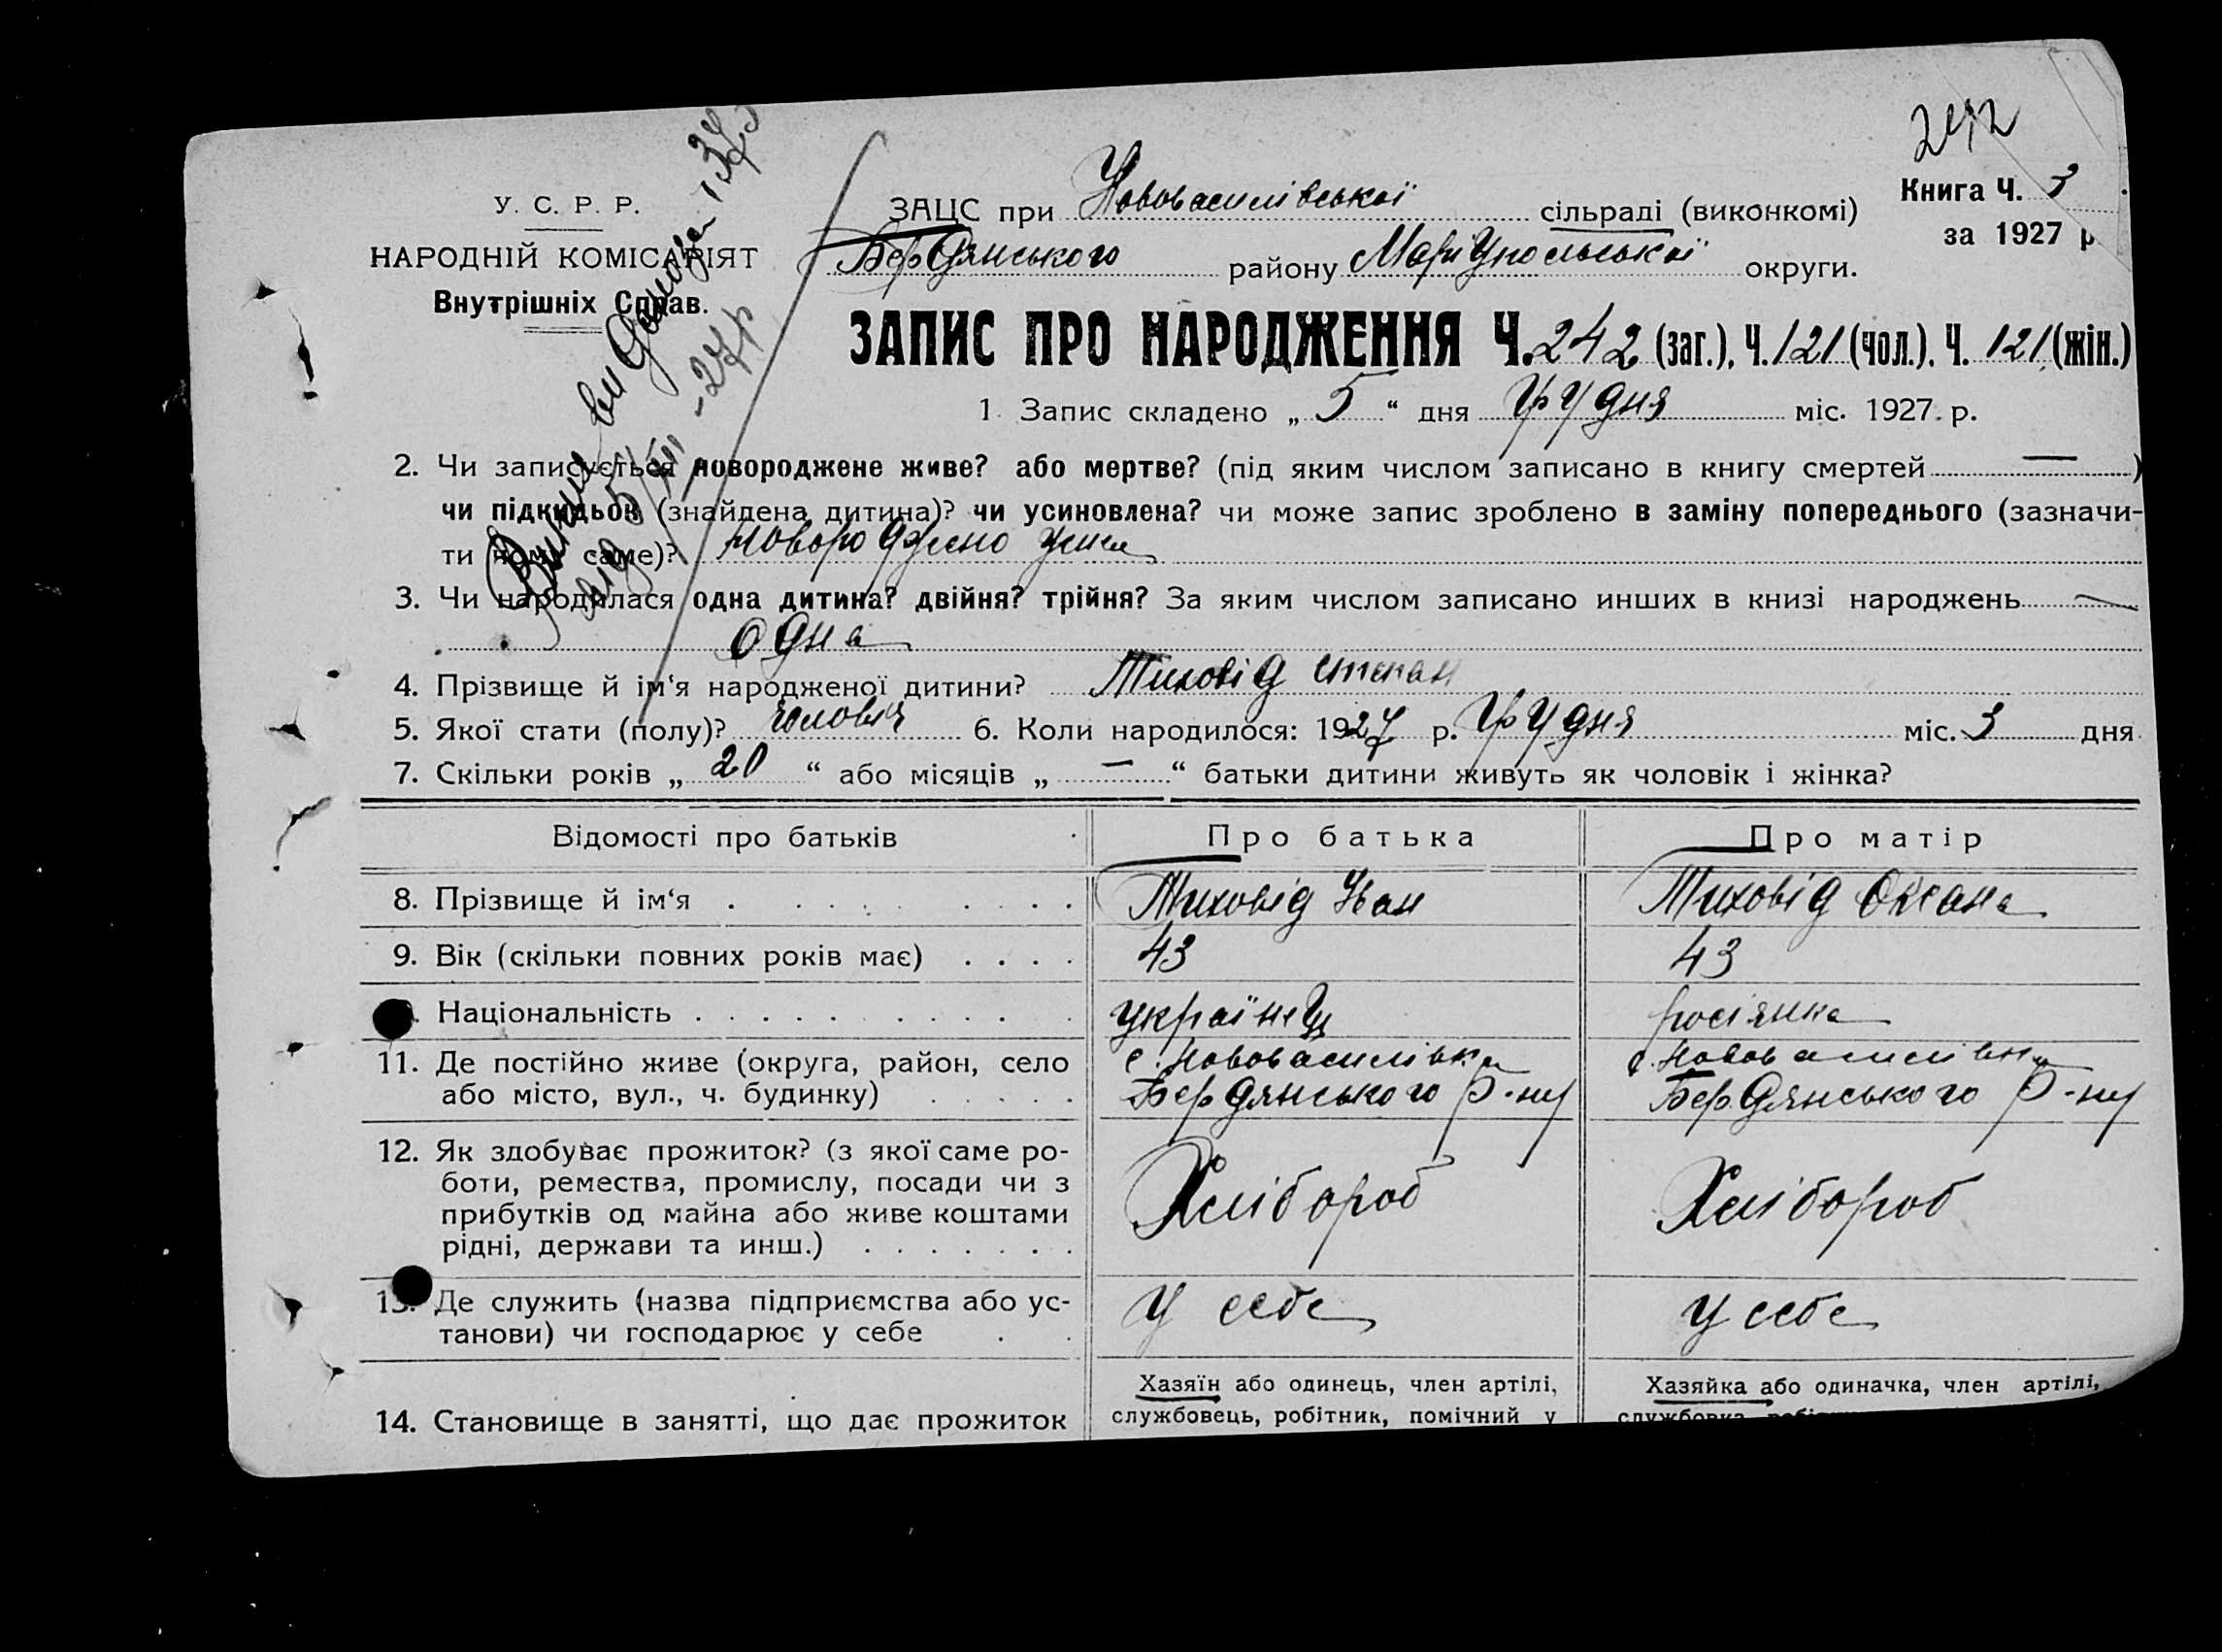 242
У. С. Р. Р.
НАРОДНІЙ КОМІСАРІЯТ
Внутрішніх Справ.
ЗАЦС при Нововасилівської сільраді (виконкомі)
Книга Ч. 3
за 1927 р
Бердянського району Маріупольської округи.
ЗАПИС ПРО НАРОДЖЕННЯ Ч. 242 (заг.), Ч. 121 (чол.), Ч. 121 (жін.)
1. Запис складено „ 5 “ дня грудня міс. 1927. р.
2. Чи записується новороджене живе? або мертве? (під яким числом записано в книгу смертей — )
чи підкидьок (знайдена дитина)? чи усиновлена? чи може запис зроблено в заміну попереднього (зазначи-
ти чому саме)? Новороджено
3. Чи народилася одна дитина? двійня? трійня? За яким числом записано инших в книзі народжень —
одна
4. Прізвище й ім‘я народженої дитини? Тиховід Степан
5. Якої стати (полу)? чоловіч 6. Коли народилося: 1927 р. грудня міс. 3 дня
7. Скільки років „ 20 “ або місяців „ — “ батьки дитини живуть як чоловік і жінка?
Відомості про батьків Про батька Про матір
8. Прізвище й ім‘я . Тиховід Іван Тиховід Оксана
9. Вік (скільки повних років має) 43 43
Національність українец росіянка
11. Де постійно живе (округа, район, село с. Нововасилівка с. Нововасилівка
або місто, вул., ч. будинку) Бердянського р-ну Бердянського р-ну
12. Як здобуває прожиток? (з якої саме ро-
боти, ремества, промислу, посади чи з
прибутків од майна або живе коштами Хлібороб Хлібороб
рідні, держави та инш.)
13. Де служить (назва підприємства або ус- у себе у себе
танови) чи господарює у себе
Хазяїн або одинець, член артілі, Хазяйка або одиначка, член артілі,
14. Становище в занятті, що дає прожиток службовець, робітник, помічний у службовка